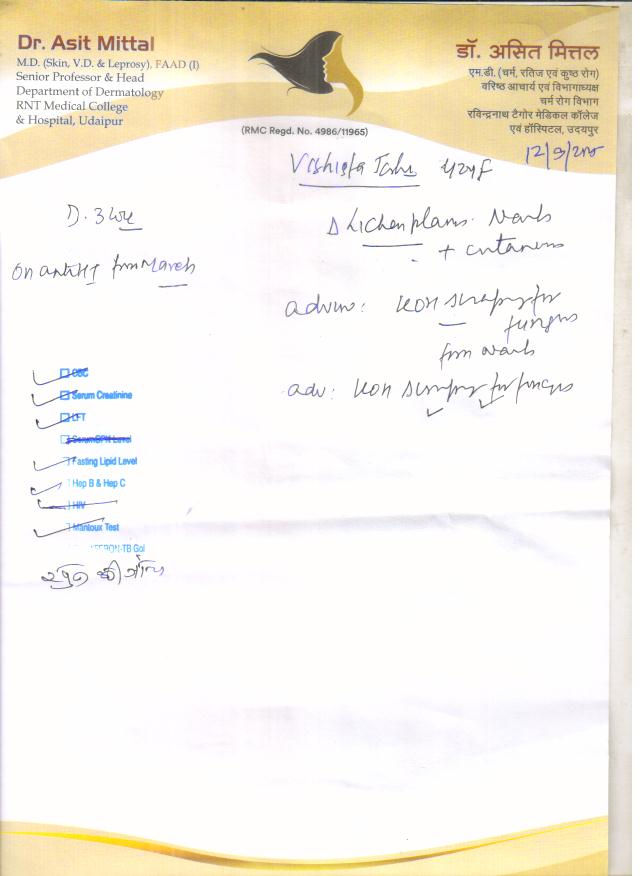 Dr. Asit Mittal
M.D. (Skin, V.D. & Leprosy), FAAD (I)
Senior Professor & Head
Department of Dermatology
RNT Medical College
& Hospital, Udaipur
(RMC Regd. No. 4986/11965)
डॉ. असित मित्तल
एम.डी. (चर्म, रतिज एवं कुष्ठ रोग)
वरिष्ठ आचार्य एवं विभागाध्यक्ष
चर्म रोग विभाग
रविन्द्रनाथ टैगोर मेडिकल कॉलेज
एवं हॉस्पिटल, उदयपुर
12/9/
D.
Lichen planus. Nails
+ cutaneous
On from March
KOH scraping for
fungus
from nails
adv: KOH scraping for fungus
CBC
Serum Creatinine
LFT
Fasting Lipid Level
Hep B & Hep C
HIV
Mantoux Test
-TB Gol